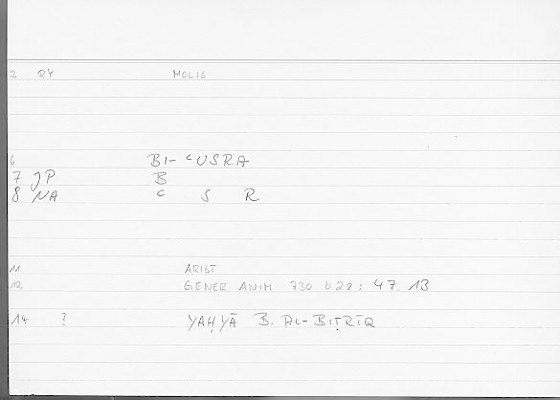 2 RY MOLIS
6 BI-ʿUSRA
7 JP B
8 NA ʿ S R
11 ARIST
12 GENER ANIM 730 b28: 47.13
14 ? YAḤYĀ B. AL-BIṬRĪQ